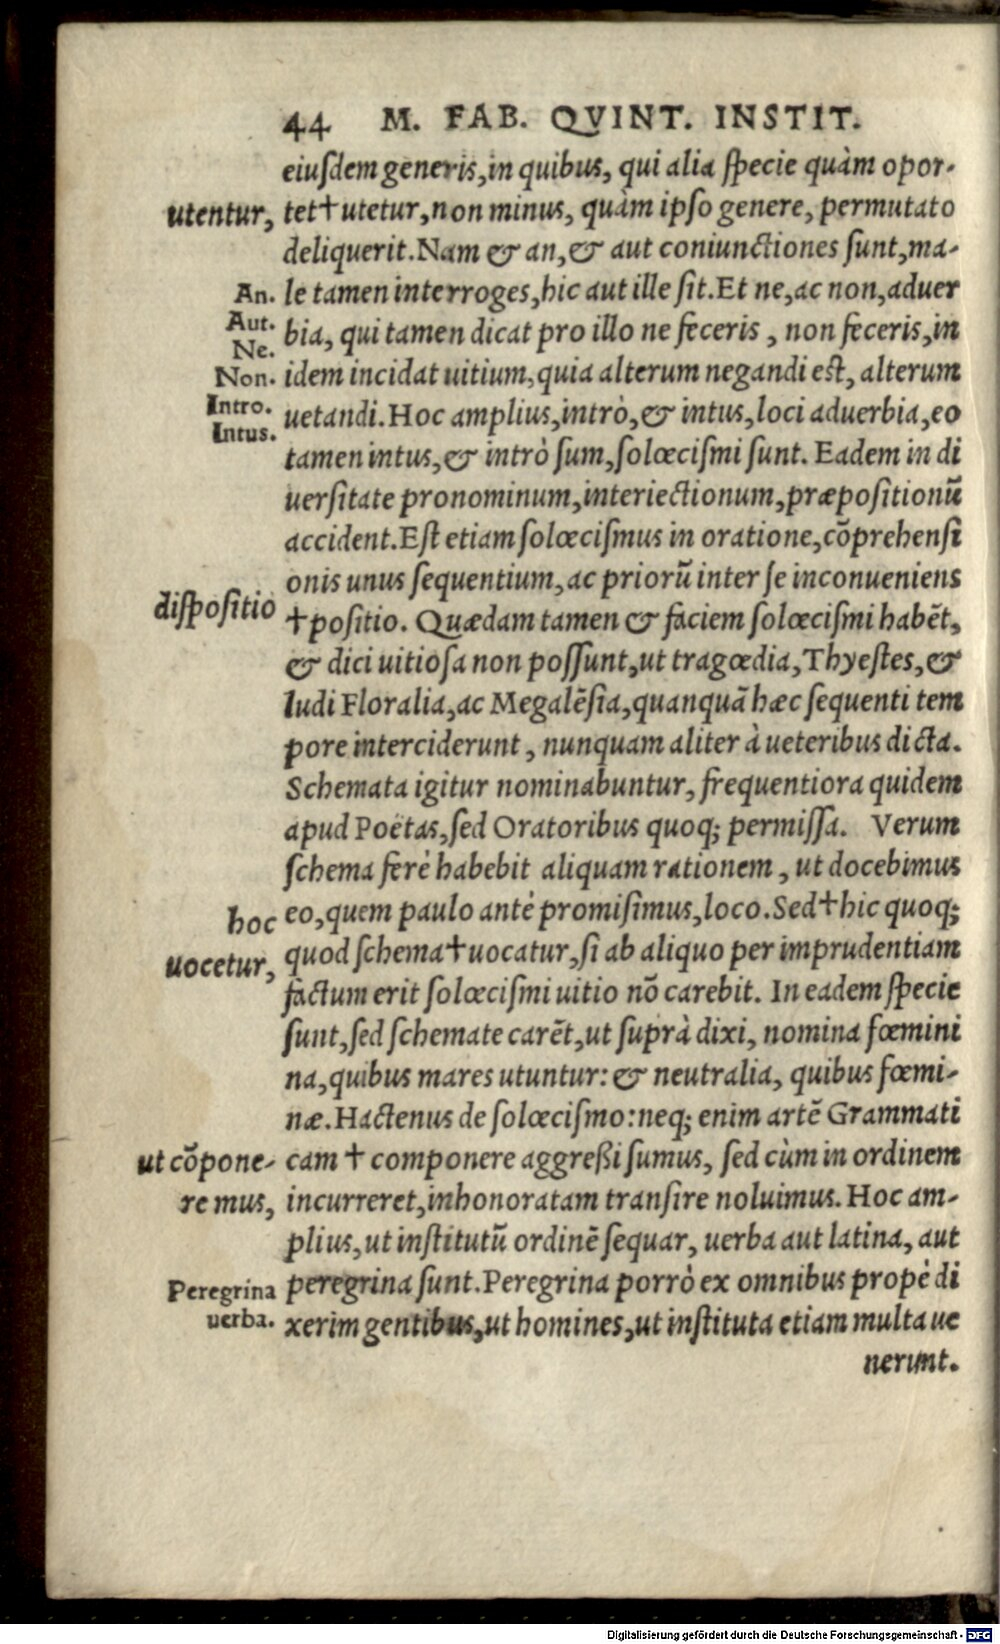 44 M. FAB. QVINT. INSTIT.
eiuſdem generis, in quibus, qui alia ſpecie quàm opor-
utentur, tet†utetur, non minus, quàm ipſo genere, permutato
deliquerit. Nam & an, & aut coniunctiones ſunt, ma-
An. le tamen interroges, hic aut ille ſit. Et ne, ac non, aduer
Aut.
Ne.
bia, qui tamen dicat pro illo ne feceris, non feceris, in
Non. idem incidat uitium, quia alterum negandi eſt, alterum
Intro.
Intus.
uetandi. Hoc amplius, intrò, & intus, loci aduerbia, eo
tamen intus, & intrò ſum, ſolœciſmi ſunt. Eadem in di
uerſitate pronominum, interiectionum, præpoſitionū
accident. Eſt etiam ſolœciſmus in oratione, cōprehenſi
onis unus ſequentium, ac priorū inter ſe inconueniens
diſpoſitio †poſitio. Quædam tamen & faciem ſolœciſmi habēt,
& dici uitioſa non poſſunt, ut tragœdia, Thyeſtes, &
ludi Floralia, ac Megalēſia, quanquā hæc ſequenti tem
pore interciderunt, nunquam aliter à ueteribus dicta.
Schemata igitur nominabuntur, frequentiora quidem
apud Poëtas, ſed Oratoribus quoq; permiſſa. Verum
ſchema ferè habebit aliquam rationem, ut docebimus
hoc eo, quem paulo antè promiſimus, loco. Sed†hic quoq;
uocetur, quod ſchema†uocatur, ſi ab aliquo per imprudentiam
factum erit ſolœciſmi uitio nō carebit. In eadem ſpecie
ſunt, ſed ſchemate carēt, ut ſuprà dixi, nomina fœmini
na, quibus mares utuntur: & neutralia, quibus fœmi-
næ. Hactenus de ſolœciſmo: neq; enim artē Grammati
ut cōpone- cam † componere aggreßi ſumus, ſed cùm in ordinem
re mus, incurreret, inhonoratam tranſire noluimus. Hoc am-
plius, ut inſtitutū ordinē ſequar, uerba aut latina, aut
Peregrina
uerba.
peregrina ſunt. Peregrina porrò ex omnibus propè di
xerim gentibus, ut homines, ut inſtituta etiam multa ue
nerunt.
Digitalisierung gefördert durch die Deutsche Forschungsgemeinschaft - DFG